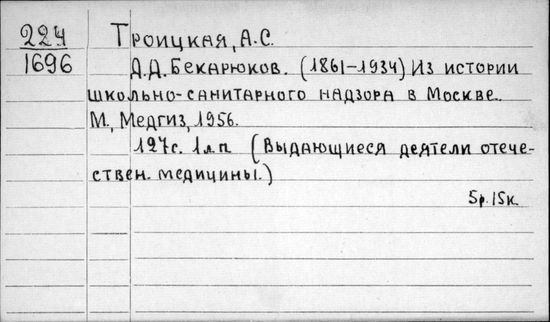 224
1696
Троицкая, А.С.
Д.Д. Бекарюков. (1861-1934) Из истории
школьно-санитарного надзора в Москве.
М., Медгиз, 1956.
127с. 1л.п (Выдающиеся деятели отече-
ствен. медицины.)
5р.15к.